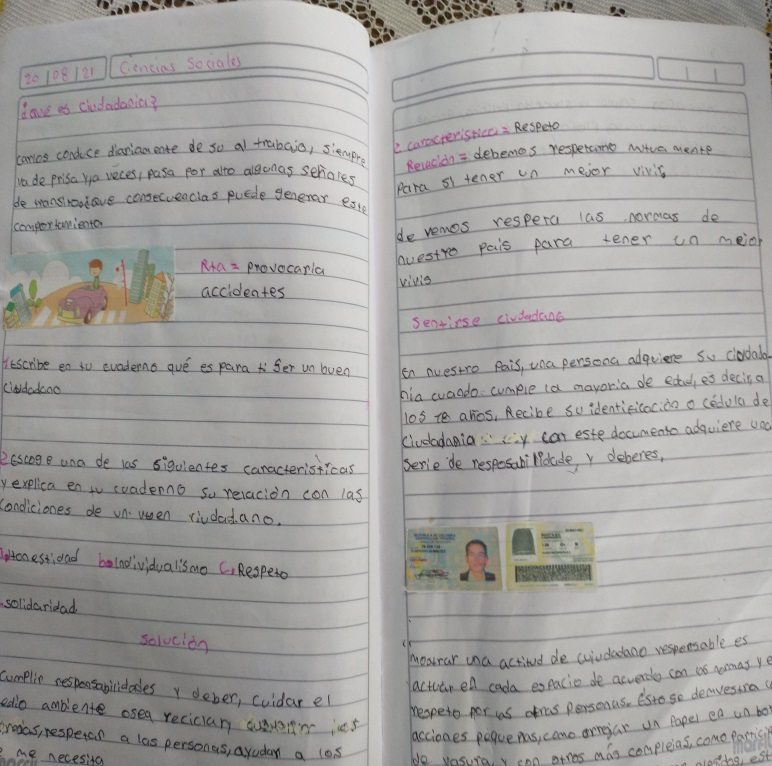 20 08 21 Ciencias Sociales
¿Qué es ciudadania?
Carlos conduce diariamente de su al trabajo, siempre
va de prisa y, a veces, pasa por alto algunas señales
de transito ¿Que consecuencias puede generar este
comportamiento
Rta = provocaria
accidentes
1 Escribe en tu cuaderno qué es para ti ser un buen
ciudadano
2 Escoge una de las siguientes caracteristicas
y explica en tu cuaderno su relación con las
condiciones de un buen ciudadano.
Honestidad b. Individualismo C. Respeto
solidaridad
Solución
cumplir responsabilidades y deber, cuidar el
medio ambiente osea reciclar,
respetar a las personas, ayudar a los
me necesita
2 caracteristica = Respeto
Relación = debemos respetarno mutua mente
Para si tener un mejor vivir
de vemos respeta las normas de
nuestro pais para tener un mejor
vivir
Sentirse ciudadano
En nuestro Pais, una persona adquiere su ciudada
nia cuando cumple la mayoria de edad, es decir, a
los 18 años, Recibe su identificación o cédula de
Ciudadania y con este documento adquiere una
serie de resposabilidade y deberes,
mostrar una actitud de ciudadano responsable es
actuar en cada espacio de acuerdo con las normas y e
respeto por las otras personas. Ésto se demuestra
acciones pequeñas, como arrojar un papel en un bot
de basura, y con otros más complejas, como